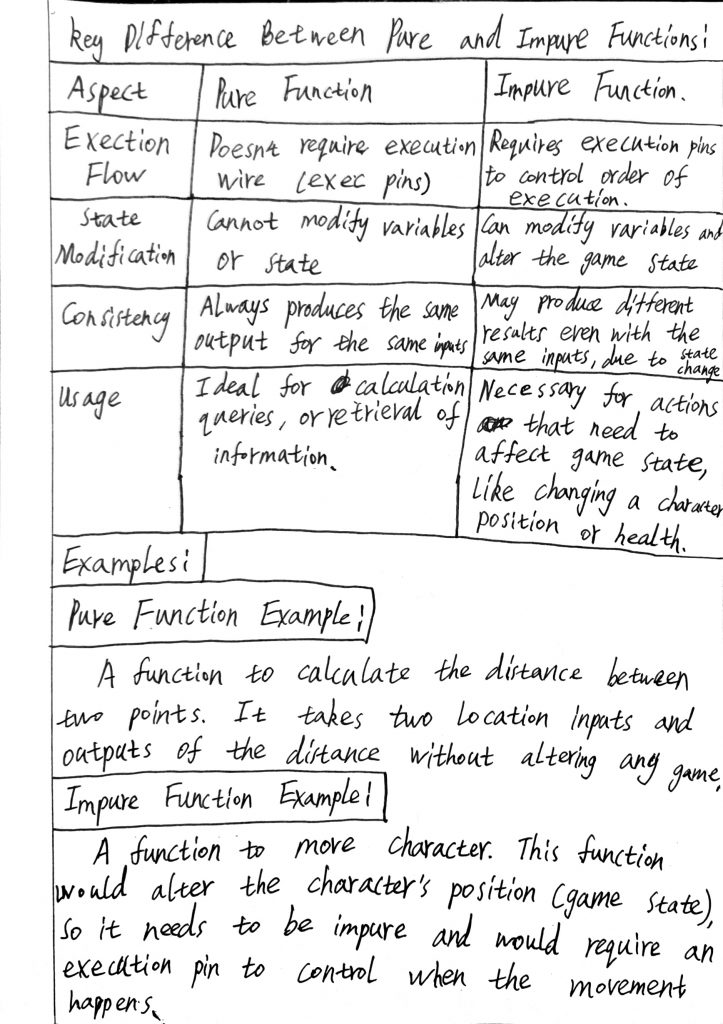 key Difference Between Pure and Impure Functions:
Aspect
Pure Function
Impure Function.
Exection
Flow
Doesn't require execution
wire (exec pins)
Requires execution pins
to control order of
execution.
State
Modification
Cannot modify variables
or state
Can modify variables and
alter the game state
Consistency
Always produces the same
output for the same inputs
May produce different
results even with the
same inputs, due to state
change
Usage
Ideal for calculation
queries, or retrieval of
information.
Necessary for actions
that need to
affect game state,
like changing a character
position or health.
Examples:
Pure Function Example:
A function to calculate the distance between
two points. It takes two location inputs and
outputs of the distance without altering any game.
Impure Function Example:
A function to move character. This function
would alter the character's position (game state),
so it needs to be impure and would require an
execution pin to control when the movement
happens.